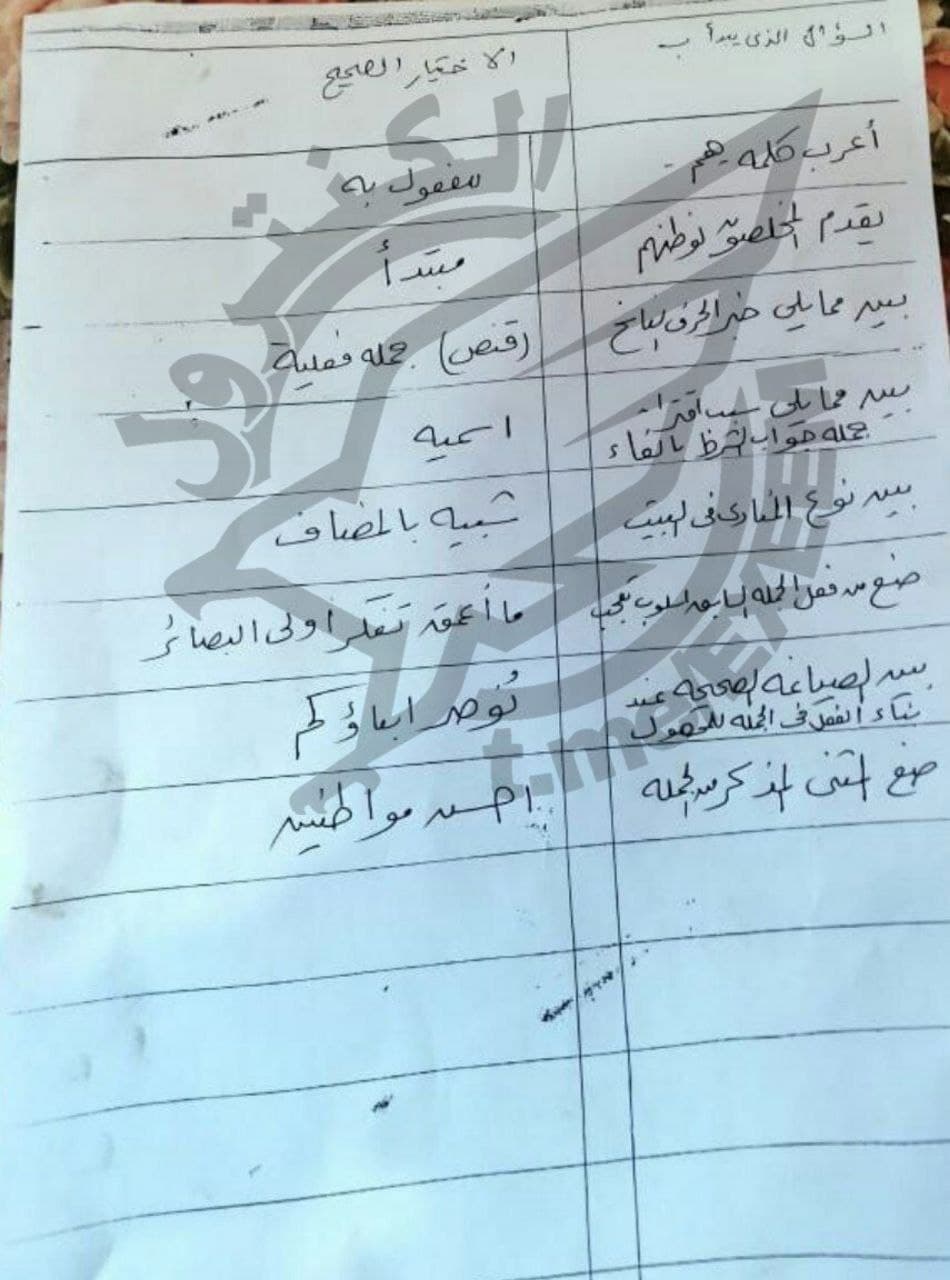 السؤال الذى يبدأ ب
الاختيار الصحيح
أعرب كلمه - هم -
مفعول به
يقدم المخلصون لوطنهم
مبتدأ
بين مما يلي خبر الحرف الناسخ
(قنص) جمله فعلية
بين مما يلي سبب اقتران
جمله جواب الشرط بالفاء
اسميه
بين نوع المنادى فى البيت
شبيه بالمضاف
ضع من فعل الجمله السابقه اسلوب تعجب
ما أعمق تفكر أولى البصائر
بين الصياغه الصحيحه عند
بناء الفعل فى الجمله للمجهول
نُوصر ابناؤكم
ضع المثنى المذكر من الجمله
احسن مواطنين
الكنترول
t.me/